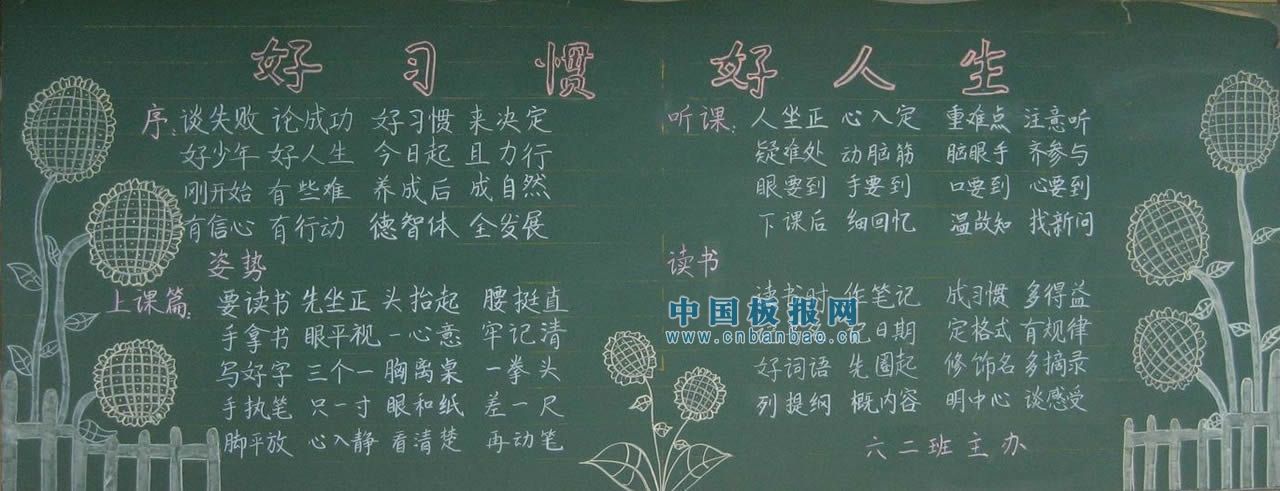 好习惯 好人生
序：谈失败 论成功 好习惯 来决定
好少年 好人生 今日起 且力行
刚开始 有些难 养成后 成自然
有信心 有行动 德智体 全发展
姿势
上课篇：要读书 先坐正 头抬起 腰挺直
手拿书 眼平视 一心意 牢记清
写好字 三个一 胸离桌 一拳头
手执笔 只一寸 眼和纸 差一尺
脚平放 心入静 看清楚 再动笔
听课：人坐正 心入定 重难点 注意听
疑难处 动脑筋 脑眼手 齐参与
眼要到 手要到 口要到 心要到
下课后 细回忆 温故知 找新问
读书
读书时 作笔记 成习惯 多得益
日期 定格式 有规律
好词语 先圈起 修饰名 多摘录
列提纲 概内容 明中心 谈感受
六二班主办
中国板报网
www.cnbanbao.cn